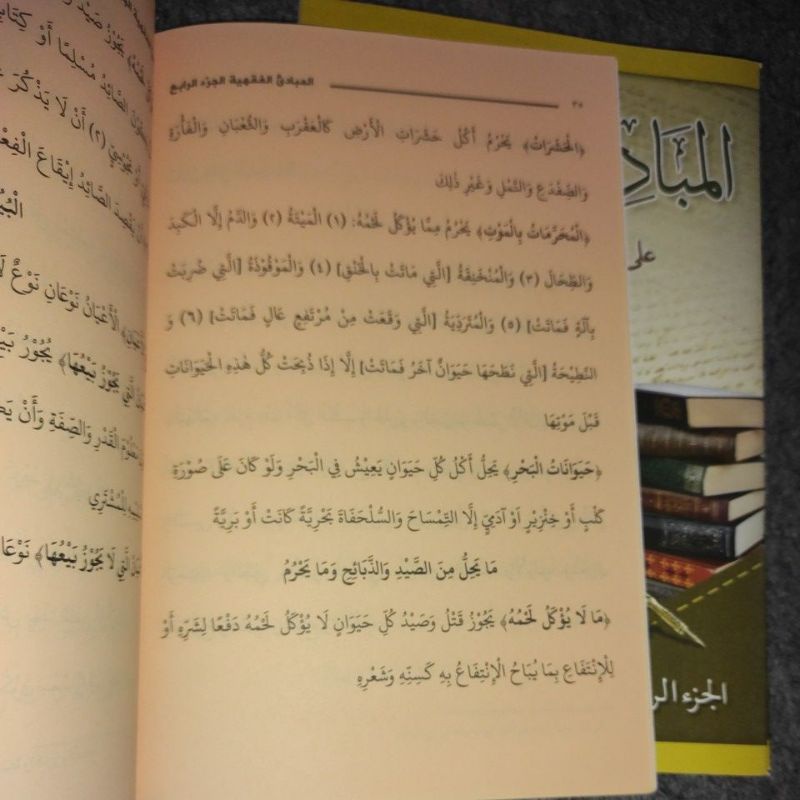 المبادئ الفقهية الجزء الرابع
٣٥
﴿الْحَشَرَاتُ﴾ يَحْرُمُ أَكْلُ حَشَرَاتِ الْأَرْضِ كَالْعَقْرَبِ وَالثُّعْبَانِ وَالْفَأْرَةِ
وَالضِّفْدَعِ وَالنَّمْلِ وَغَيْرِ ذٰلِكَ
﴿الْمُحَرَّمَاتُ بِالْمَوْتِ﴾ يَحْرُمُ مِمَّا يُؤْكَلُ لَحْمُهُ: (١) الْمَيْتَةُ (٢) وَالدَّمُ إِلَّا الْكَبِدَ
وَالطِّحَالَ (٣) وَالْمُنْخَنِقَةُ [الَّتِي مَاتَتْ بِالْخَنْقِ] (٤) وَالْمَوْقُوْذَةُ [الَّتِي ضُرِبَتْ
بِآلَةٍ فَمَاتَتْ] (٥) وَالْمُتَرَدِّيَةُ [الَّتِي وَقَعَتْ مِنْ مُرْتَفِعٍ عَالٍ فَمَاتَتْ] (٦) وَ
النَّطِيْحَةُ [الَّتِي نَطَحَهَا حَيَوَانٌ آخَرُ فَمَاتَتْ] إِلَّا إِذَا ذُبِحَتْ كُلُّ هٰذِهِ الْحَيَوَانَاتِ
قَبْلَ مَوْتِهَا
﴿حَيَوَانَاتُ الْبَحْرِ﴾ يَحِلُّ أَكْلُ كُلِّ حَيَوَانٍ يَعِيْشُ فِي الْبَحْرِ وَلَوْ كَانَ عَلَى صُوْرَةِ
كَلْبٍ أَوْ خِنْزِيْرٍ اَوْ آدَمِيٍّ إِلَّا التِّمْسَاحَ وَالسُّلَحْفَاةَ بَحْرِيَّةً كَانَتْ أَوْ بَرِيَّةً
مَا يَحِلُّ مِنَ الصَّيْدِ وَالذَّبَائِحِ وَمَا يَحْرُمُ
﴿مَا لَا يُؤْكَلُ لَحْمُهُ﴾ يَجُوْزُ قَتْلُ وَصَيْدُ كُلِّ حَيَوَانٍ لَا يُؤْكَلُ لَحْمُهُ دَفْعًا لِشَرِّهِ أَوْ
لِلْاِنْتِفَاعِ بِمَا يُبَاحُ الْاِنْتِفَاعُ بِهِ كَسِنِّهِ وَشَعْرِهِ
لَحْمُهُ﴾ يَجُوْزُ صَيْدُ
الصَّائِدُ مُسْلِمًا أَوْ
(٢) أَنْ لَا يَذْكُرَ
الصَّائِدُ إِيْقَاعَ الْفِعْلِ
الْأَعْيَانُ نَوْعَانِ نَوْعٌ
الَّتِي يَجُوْزُ بَيْعُهَا﴾ يَجُوْزُ
الْقَدْرِ وَالصِّفَةِ وَأَنْ
لِلْمُشْتَرِي
الَّتِي لَا يَجُوْزُ بَيْعُهَا﴾
على